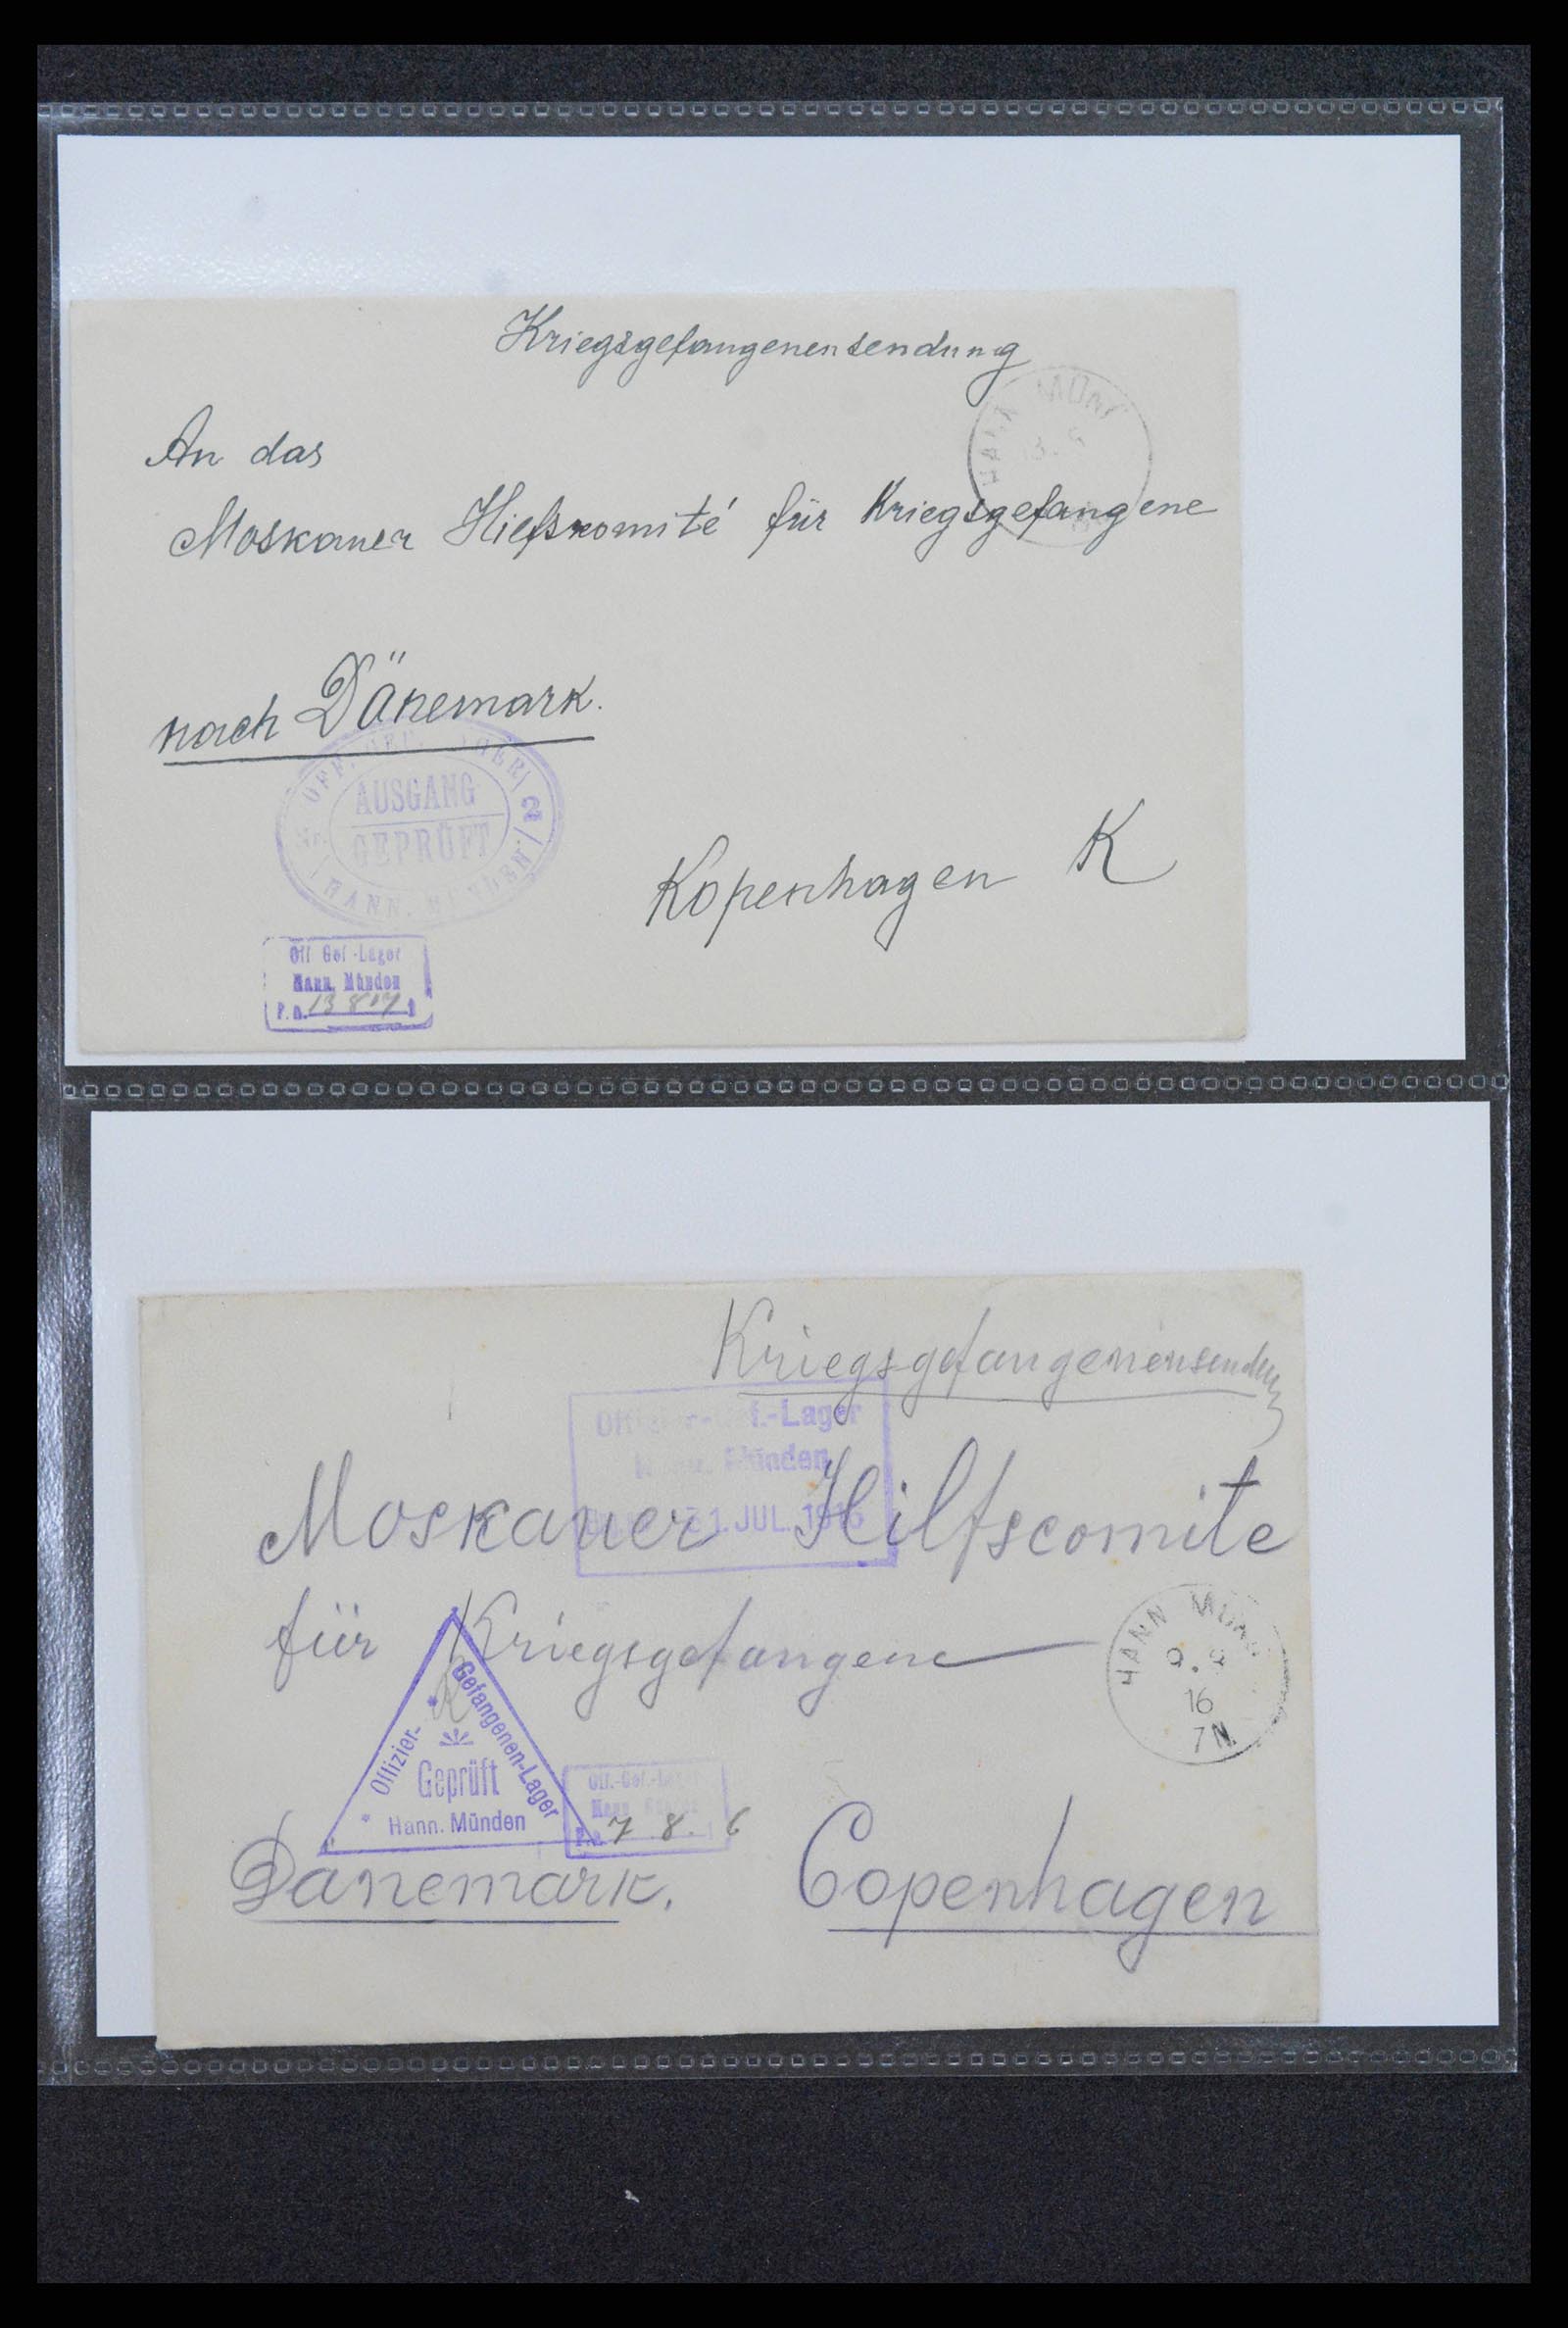 Kriegsgefangenensendung
HANN MÜN
An das
Moskauer Hiefskomité für Kriegsgefangene
nach Dänemark.
OFF. GEF. LAGER 2
AUSGANG
GEPRÜFT
HANN. MÜNDEN
Kopenhagen K
Off. Gef.-Lager
Hann. Münden
P. a. 13 8
Kriegsgefangenensendung
Offizier-Gef.-Lager
Hann. Münden
31. JUL. 1916
Moskauer Hilfscomite
für Kriegsgefangene
HANN MÜN
9. 8
16
7 N
Offizier-Gefangenen-Lager
Geprüft
Hann. Münden
Off.-Gef.-Lager
Hann. Münden
P.a. 7. 8. 6
Dänemark.
Copenhagen